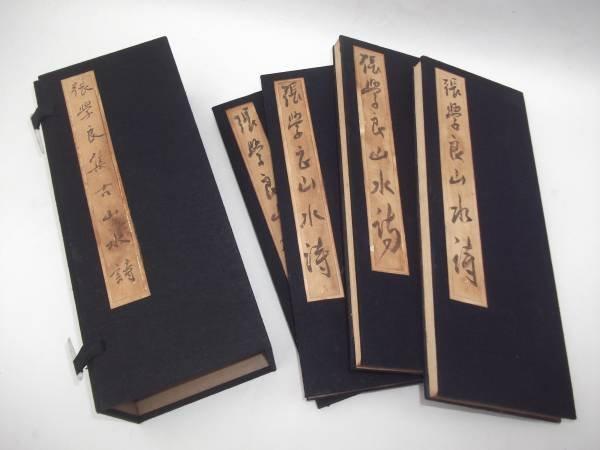 張学良集古山水詩
張学良山
張学良山水詩
張学良山水詩
張学良山水詩